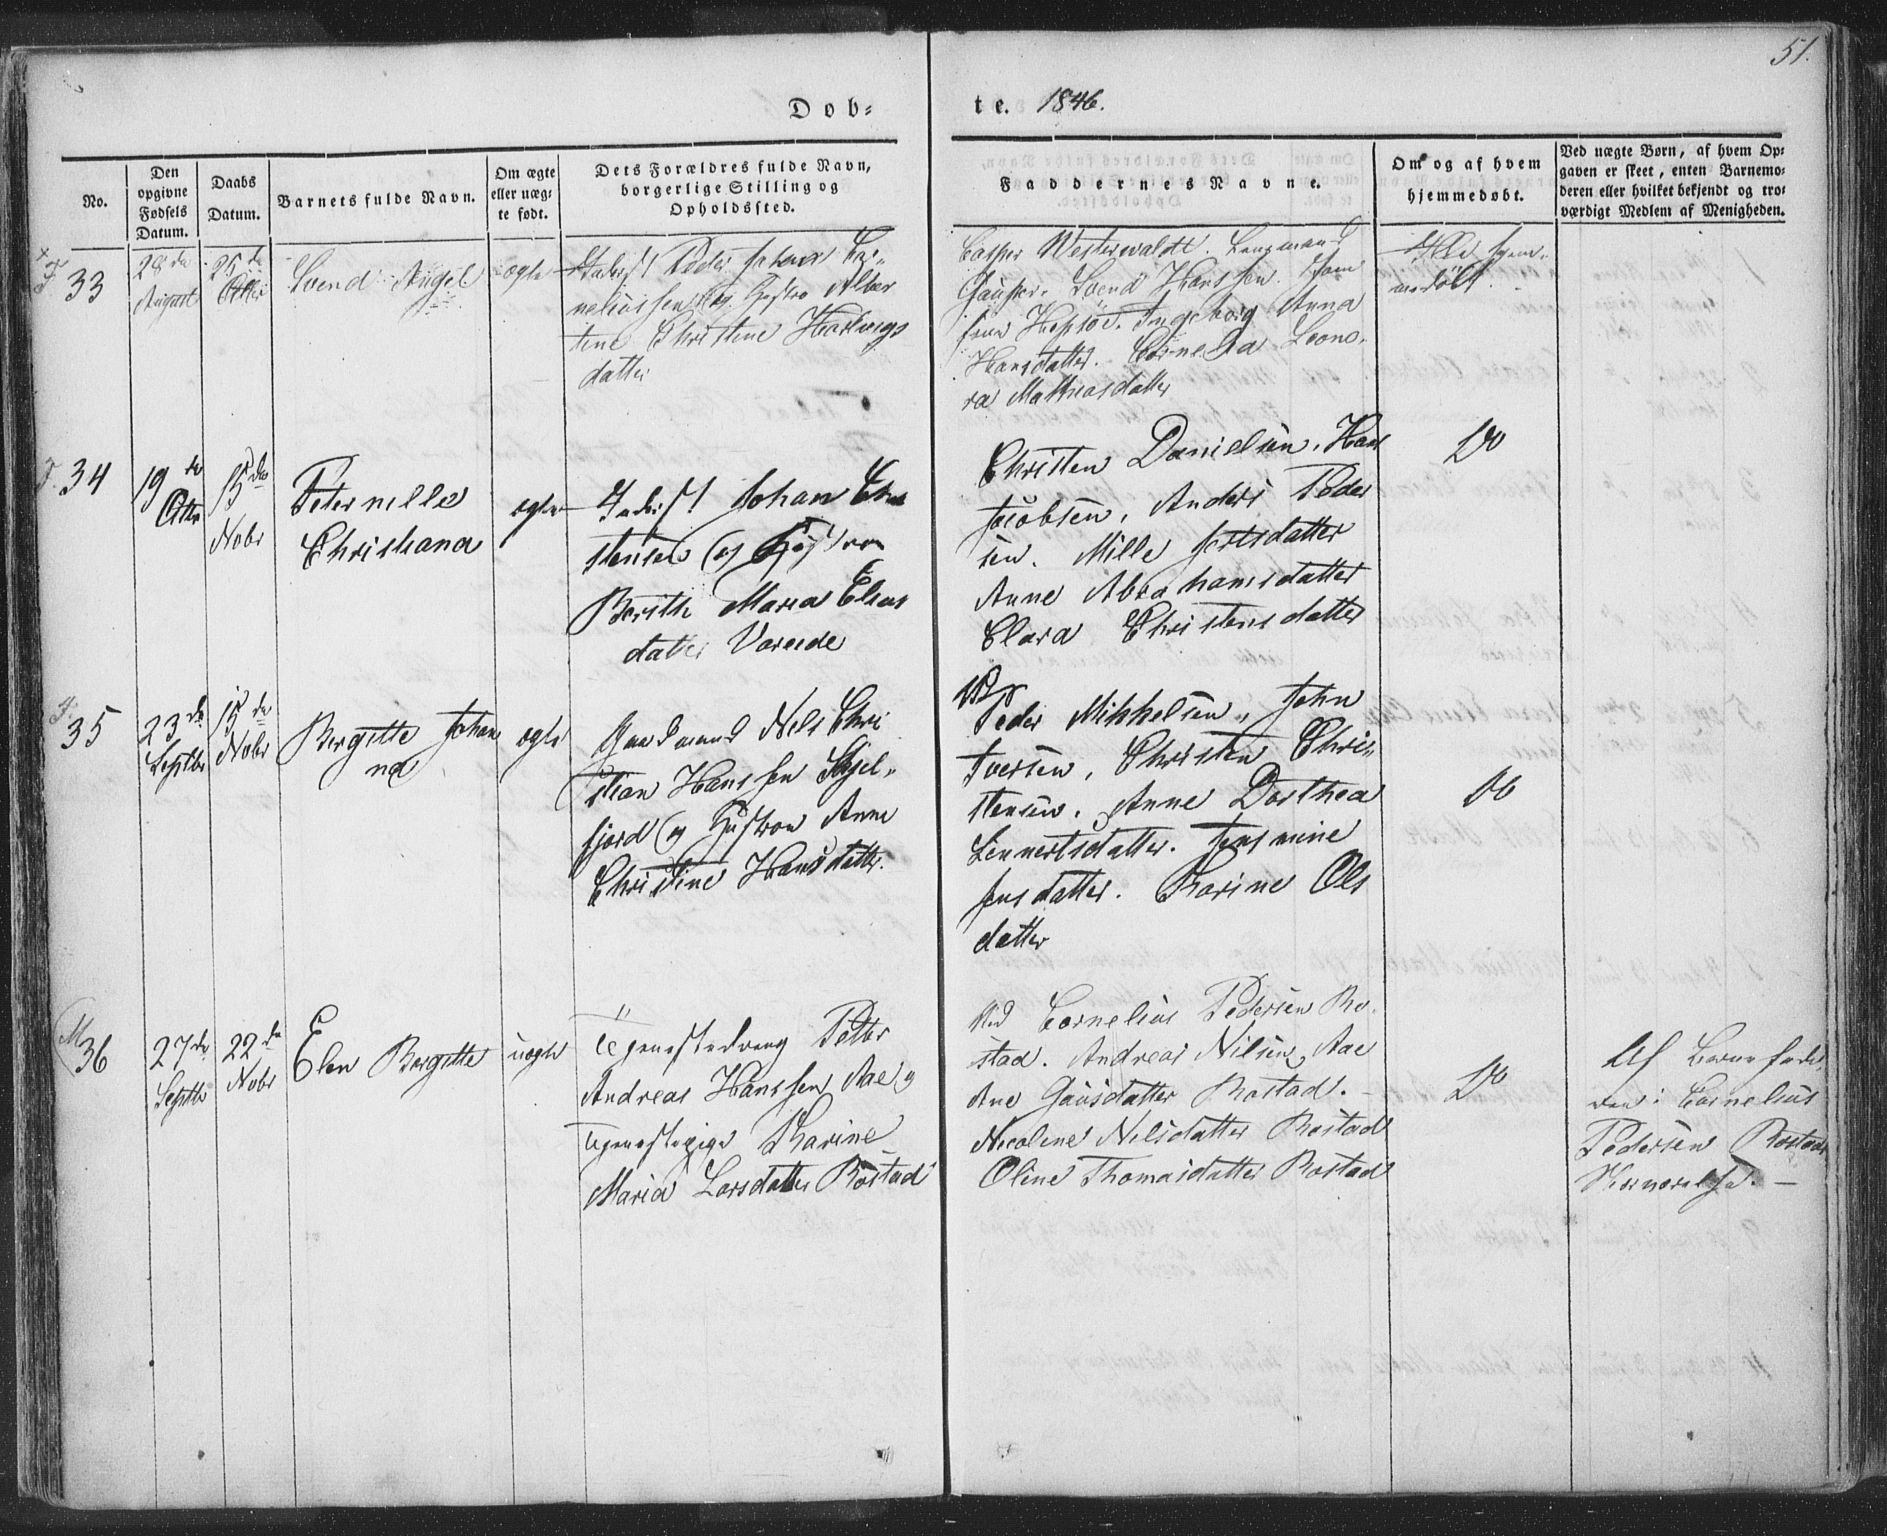 51.
Dob=
te. 1846.
No.
Den
opgivne
Fødsels
Datum.
Daabs
Datum.
Barnets fulde Navn.
Om ægte
eller uæg=
te født.
Dets Forældres fulde Navn,
borgerlige Stilling og
Opholdssted.
Faddernes Navne.
Om og af hvem
hjemmedøbt.
Ved uægte Børn, af hvem Op=
gaven er skeet, enten Barnemo=
deren eller hvilket bekjendt og tro=
værdigt Medlem af Menigheden.
33
28de
August
25de
Octbr
Svend Angel
ægte
Inderst Peder Johan Cor-
neliussen og Hustro Alber
tine Christine Hartvigs
datter
Casper Westerwaldt. Langmand
Svend Hanssen.
Ingeborg Anna
Hansdatter. Cornelia Leono-
ra Mathiasdatter
Ikke hjem-
medøbt.
34
19de
Octbr
15de
Nobr
Peternelle
Christiana
ægte
Inderst Johan Chri
stensen og Hustro
Berith Maria Elias
datter Vareide
Christen Danielsen, Hans
Jacobsen, Anders Peder
sen. Mille
Anne Abrahamsdatter
Clara Christensdatter
Do
35
23de
Septbr
15de
Nobr
Bergitte Johan
na
ægte
Gaardmand Nels Chri
stian Hanssen Skjel-
fjord og Hustroe Anne
Christine Hansdatter.
Peder Mikkelsen, John
Iversen, Christen Chri-
stensen, Anne Dorthea
Lennertsdatter. Jensmine
Jensdatter. Karine Ols
datter
Do
36
27de
Septbr
22de
Nobr
Elen Bergitte
uægte
Tjenestedreng Petter
Andreas Hanssen Aae og
Tjenestepige Karine
Maria Larsdatter Rostad
Cornelius Pedersen Ro-
stad. Andreas Nilsen Aae
Ane Gausdatter Rostad. -
Nicoline Nelsdatter Rostad
Oline Thomasdatter Rostad
Do
Af Barnefade-
ren i Cornelius
Pedersen Rostads
Nærværelse. -